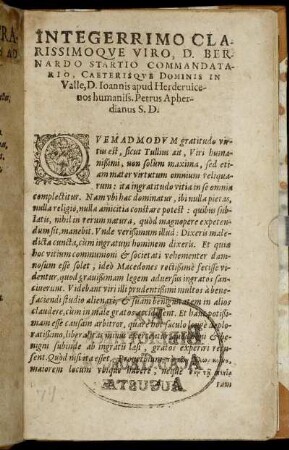 INTEGERRIMO CLA-
RISSIMOQVE VIRO, D. BER-
NARDO STARTIO COMMANDATA-
RIO, CAETERISQVE DOMINIS IN
Valle, D. Ioannis apud Herderuice-
nos humaniss. Petrus Apher-
dianus S. D.
QVEMADMODVM gratitudo vir-
tus est, sicut Tullius ait, Viri huma-
nissimi, non solum maxima, sed eti-
am mater virtutum omnium reliqua-
rum: ita ingratitudo vitia in se omnia
complectitur. Nam vbi hac dominatur, ibi nulla pietas,
nulla religio, nulla amicitia constare potest: quibus sub-
latis, nihil in rerum natura, quod magnopere expeten-
dum sit, manebit. Vnde verissimum illud: Dixeris male-
dicta cuncta, cùm ingratum hominem dixeris. Et quia
hoc vitium communioni & societati vehementer dam-
nosum esse solet, ideò Macedones rectissimè fecisse vi-
dentur, quod grauissimam legem aduersus ingratos san-
cinerunt. Videbant viri illi prudentissimi multos à bene-
faciendi studio alienari, & suam benignitatem in alios
claudere, cùm in malè gratos incidant. Et hanc potissi-
mam esse causam arbitror, quare hoc saculo longè
loratissimo, liberalium
nigni subinde ab ingratis
sent. Quòd nisi ita esset,
maiorem locum habere, neque
tam
AUGUSTA